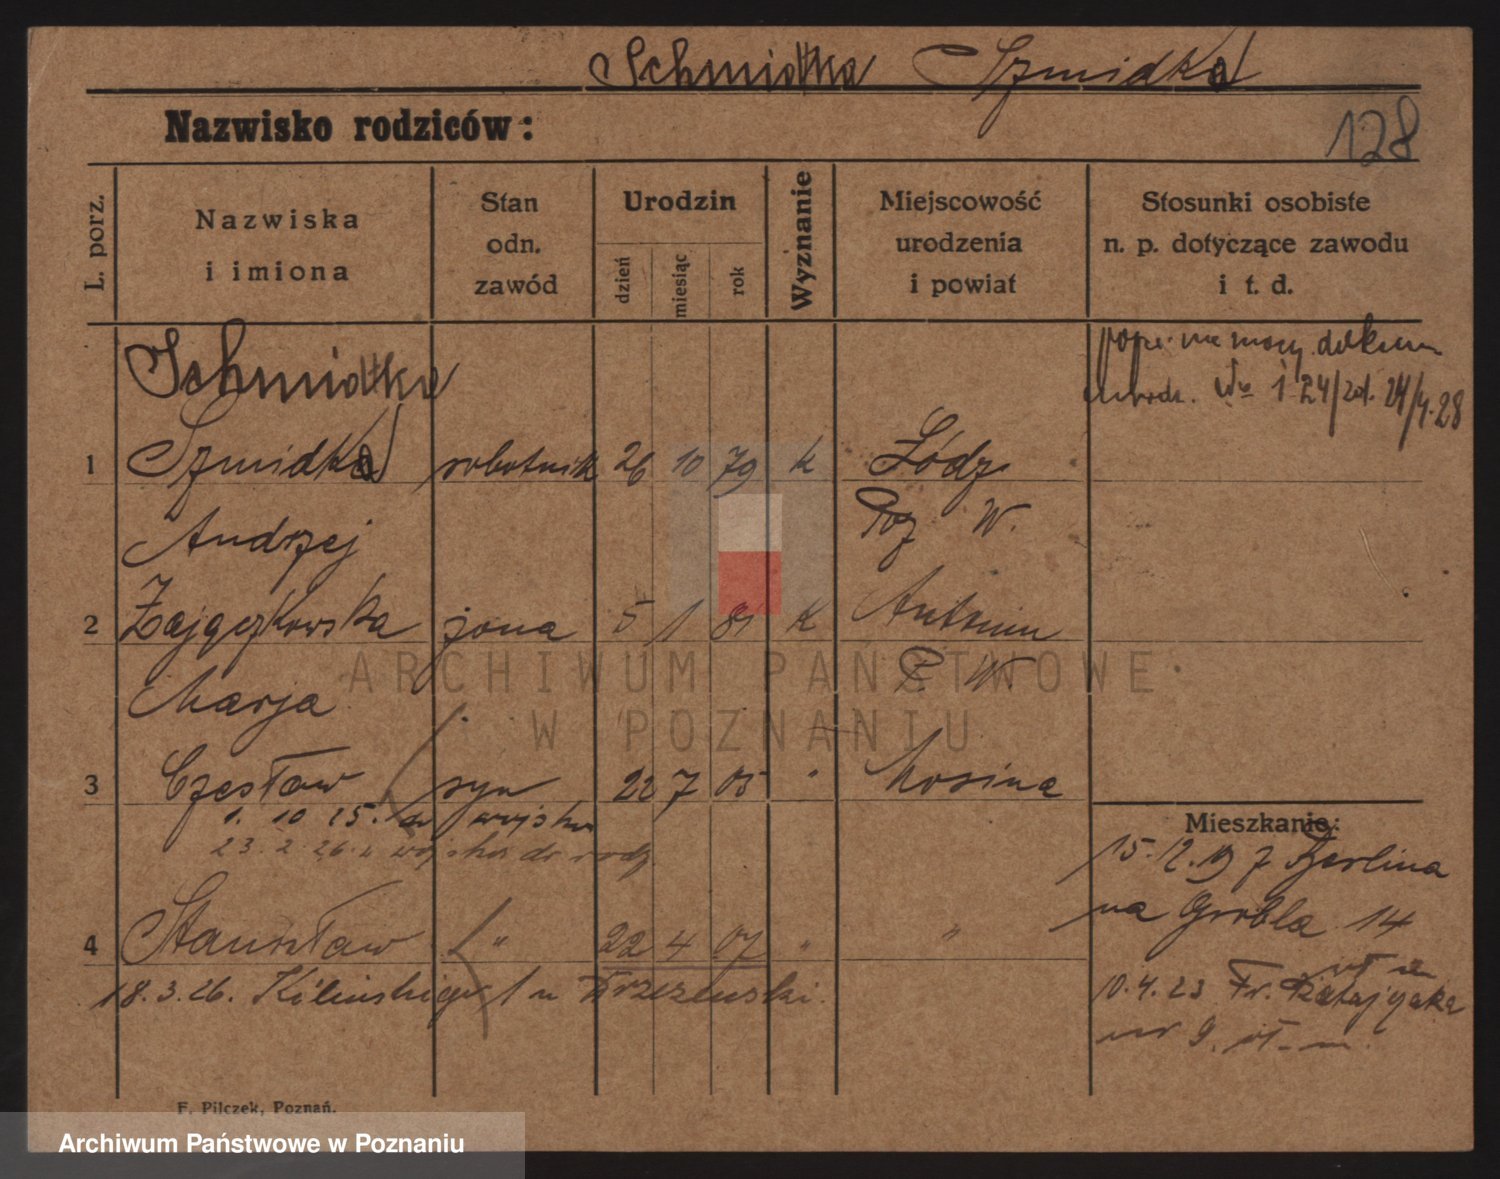 Schmidtka Szmidka
Nazwisko rodziców:
128
L. porz.
Nazwiska
i imiona
Stan
odn.
zawód
Urodzin
dzień
miesiąc
rok
Wyznanie
Miejscowość
urodzenia
i powiat
Stosunki osobiste
n. p. dotyczące zawodu
i t. d.
Schmidtka
24/4.28
1 Szmidka robotnik 26 10 79 k Łódz
Andrzej Poz W.
2 Zajączkowska żona 5 1 81 k
Marja P. W.
3 Czesław syn 22 7 05 " Mosina
1. 10 25. do wojska
23. 2. 26. z wojska do rodz
Mieszkanie:
15.12.19 z Berlina
na Grobla 14
4 Stanisław " 22 4 07 " "
18.3.26. Kilińskiego 1 u
10.4.23 Fr. Ratajczaka
nr 9.
F. Pilczek, Poznań.
ARCHIWUM PAŃSTWOWE
W POZNANIU
Archiwum Państwowe w Poznaniu